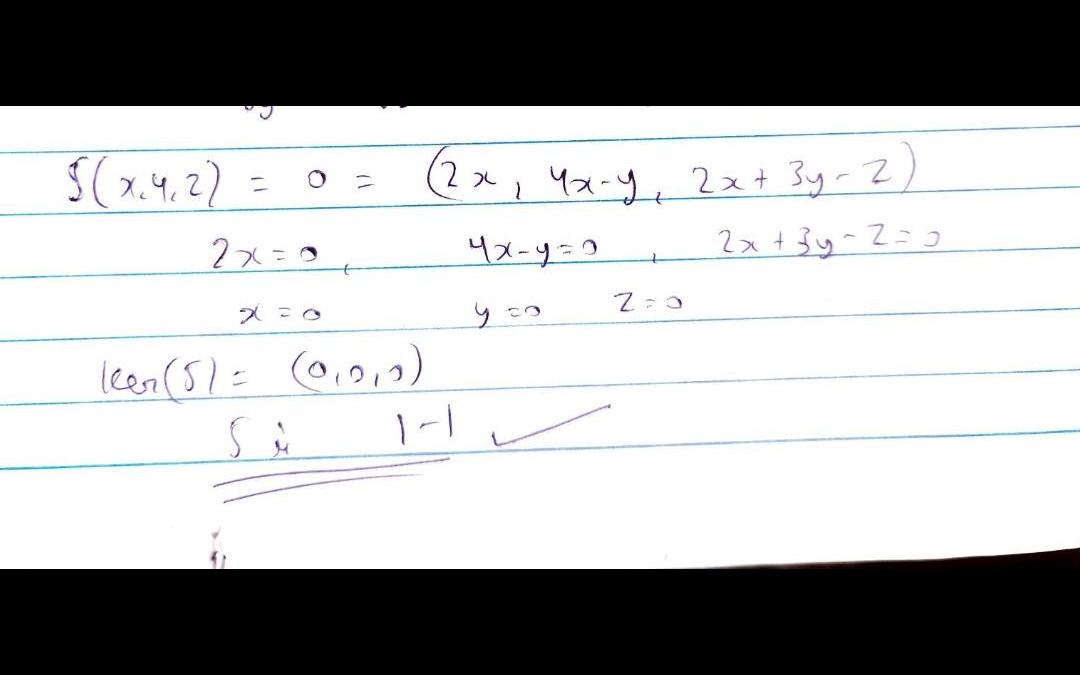 S(x,y,z) = 0 = (2x, 4x-y, 2x+3y-z)
2x=0, 4x-y=0, 2x+3y-z=0
x=0 y=0 z=0
ker(S) = (0,0,0)
S is 1-1 ✓